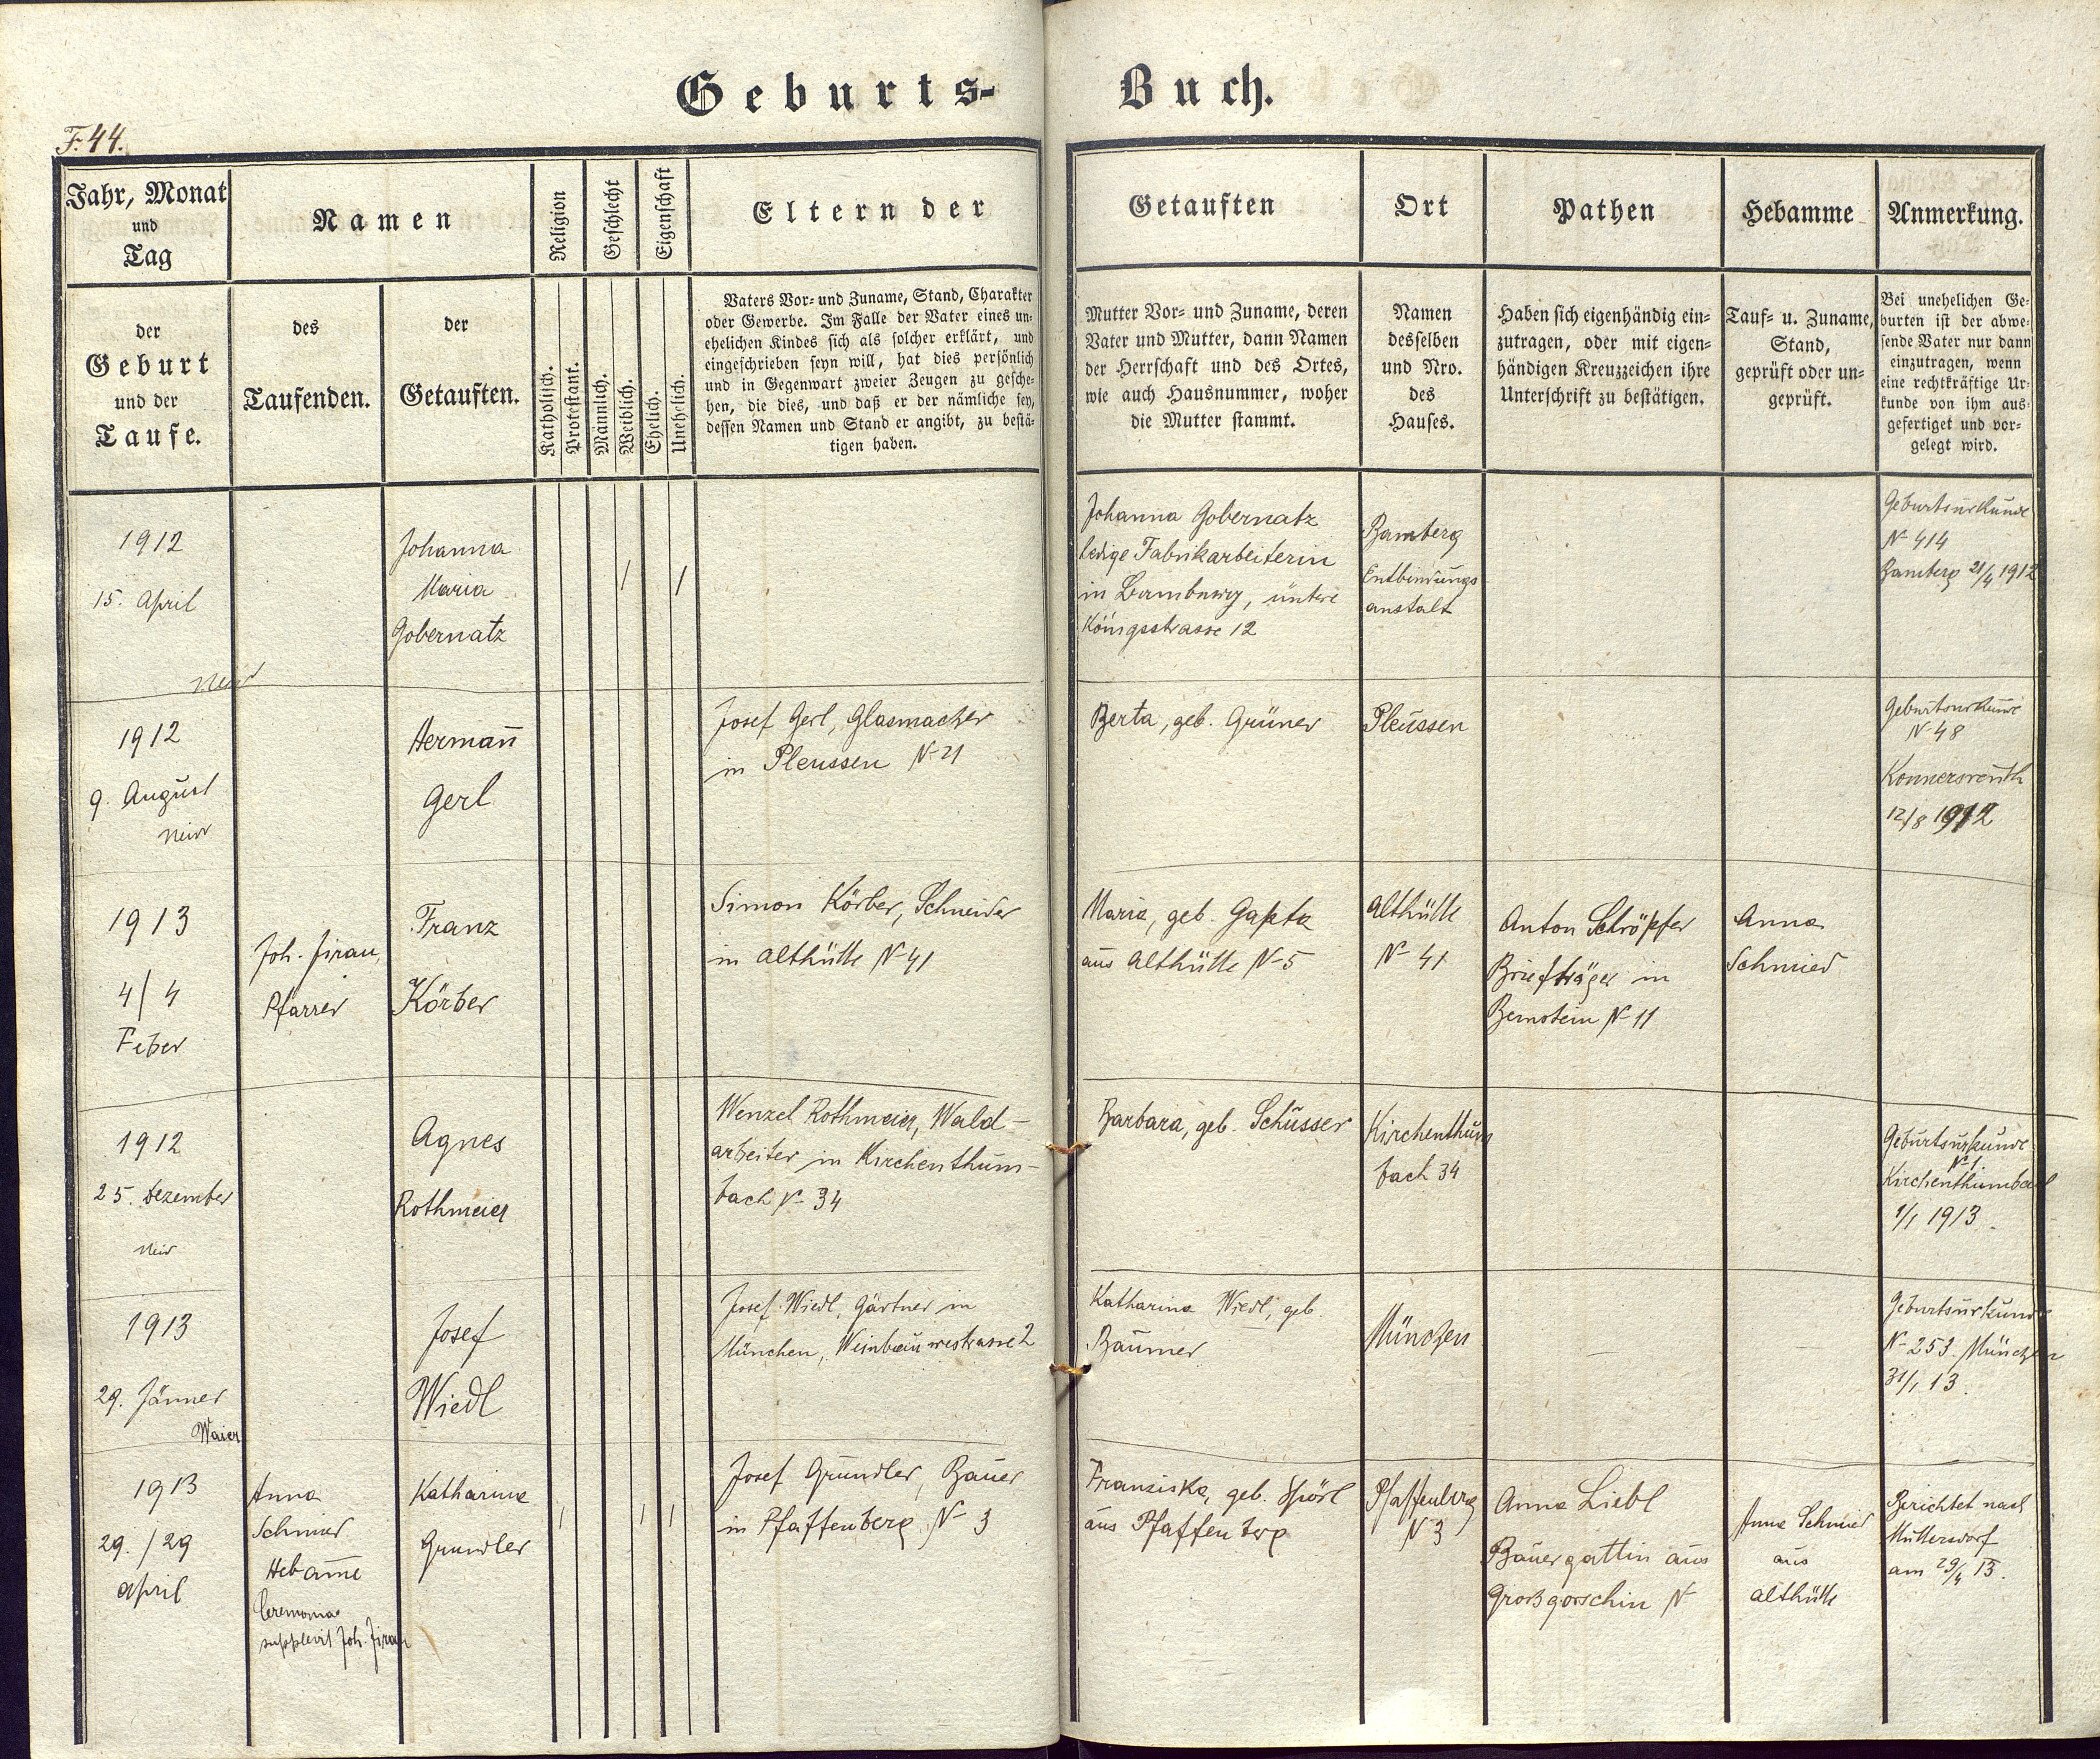 Geburts-
Buch.
F. 44.
Jahr, Monat
und
Tag
Namen
Religion
Geschlecht
Eigenschaft
Eltern der
Getauften
Ort
Pathen
Hebamme
Anmerkung.
der
Geburt
und der
Taufe.
des
Taufenden.
der
Getauften.
Katholisch.
Protestant.
Männlich.
Weiblich.
Ehelich.
Unehelich.
Vaters Vor- und Zuname, Stand, Charakter
oder Gewerbe. Im Falle der Vater eines un-
ehelichen Kindes sich als solcher erklärt, und
eingeschrieben seyn will, hat dies persönlich
und in Gegenwart zweier Zeugen zu gesche-
hen, die dies, und daß er der nämliche sey,
dessen Namen und Stand er angibt, zu bestä-
tigen haben.
Mutter Vor- und Zuname, deren
Vater und Mutter, dann Namen
der Herrschaft und des Ortes,
wie auch Hausnummer, woher
die Mutter stammt.
Namen
desselben
und Nro.
des
Hauses.
Haben sich eigenhändig ein-
zutragen, oder mit eigen-
händigen Kreuzzeichen ihre
Unterschrift zu bestätigen.
Tauf- u. Zuname,
Stand,
geprüft oder un-
geprüft.
Bei unehelichen Ge-
burten ist der abwe-
sende Vater nur dann
einzutragen, wenn
eine rechtkräftige Ur-
kunde von ihm aus-
gefertiget und vor-
gelegt wird.
1912
15. April
Johanna
Maria
Gobernatz
/
/
Johanna Gobernatz
ledige Fabrikarbeiterin
in Bamberg, untere
Königsstrasse 12
Bamberg
Entbindungs
anstalt
Geburtsurkunde
N 414
Bamberg 21/4 1912
1912
9. August
Hermann
Gerl
Josef Gerl, Glasmacher
in Pleussen N 21
Berta, geb. Grüner
Pleussen
Geburtsurkunde
N 48
Konnersreuth
12/8 1912
1913
4/4
Feber
Joh. Jirau,
Pfarrer
Franz
Körber
Simon Körber, Schneider
in Althütte N 41
Maria, geb. Gapta
aus Althütte N 5
Althütte
N 41
Anton Schröpfer
Briefträger in
Bernstein N 11
Anna
Schmied
1912
25. Dezember
Agnes
Rothmeier
Wenzel Rothmeier, Wald-
arbeiter in Kirchenthum-
bach N 34
Barbara, geb. Schusser
Kirchenthum
bach 34
Geburtsurkunde
N 1
Kirchenthumbach
1/1 1913.
1913
29. Jänner
Waier
Josef
Wiedl
Josef Wiedl, Gärtner in
München, 2
Katharina Wiedl, geb.
Baumer
München
Geburtsurkunde
N 253. München
31/1 13.
1913
29./29
April
Anna
Schmied
Hebamme
Ceremonias
supplevit Joh. Jirau
Katharina
Grundler
/
/
/
Josef Grundler, Bauer
in Pfaffenberg N 3
Franziska, geb. Spörl
aus Pfaffenberg
Pfaffenberg
N 3
Anna Liebl
Bauergattin aus
Großgorschin N
Anna Schmied
aus
Althütte
Berichtet nach
Muttersdorf
am 29/4 13.